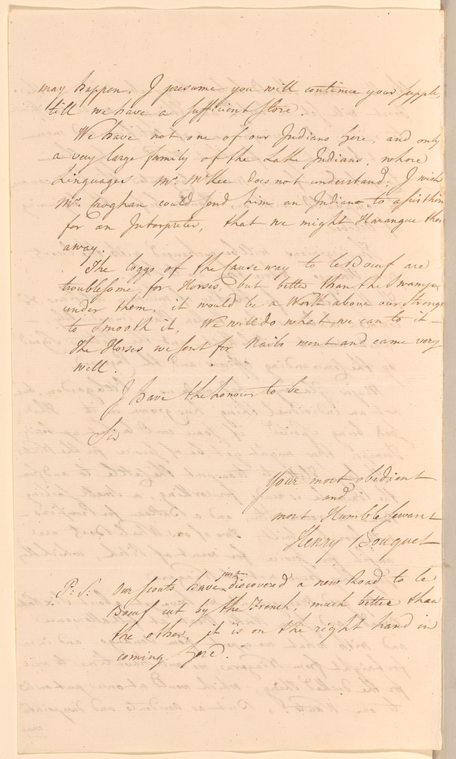 may happen. I presume you will continue your supply
till we have a sufficient store.
We have not one of our Indians here, and only
a very large family of the Lake Indians, whose
Languages Mr. McKee does not understand; I wish
Mr. Croghan could send him an Indian to assist him
for an Interpreter, that we might Harangue them
away.
The loggs of the Causeway to Le Bœuf are
troublesome for Horses, but better than the Swamps
under them, it would be a Work above our Strength
to Smooth it, We will do what we can to it
The Horses we sent for Nails went and came very
well.
I have the honour to be
Sir
Your most obedient
and
most Humble Servant
Henry Bouquet
P: S: Our Scouts have discovered a new Road to Le
Bœuf cut by the French, much better than
the other, it is on the right hand in
coming here.